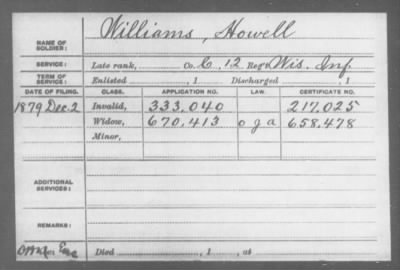 NAME OF SOLDIER: Williams, Howell
SERVICE: Late rank, Co. C, 12 Reg't Wis. Inf.
TERM OF SERVICE: Enlisted , 1 Discharged , 1
DATE OF FILING. CLASS. APPLICATION NO. LAW. CERTIFICATE NO.
1879 Dec. 2 Invalid, 333.040 217.025
Widow, 670.413 o g a 658.478
Minor,
ADDITIONAL SERVICES:
REMARKS:
Died , 1 , at